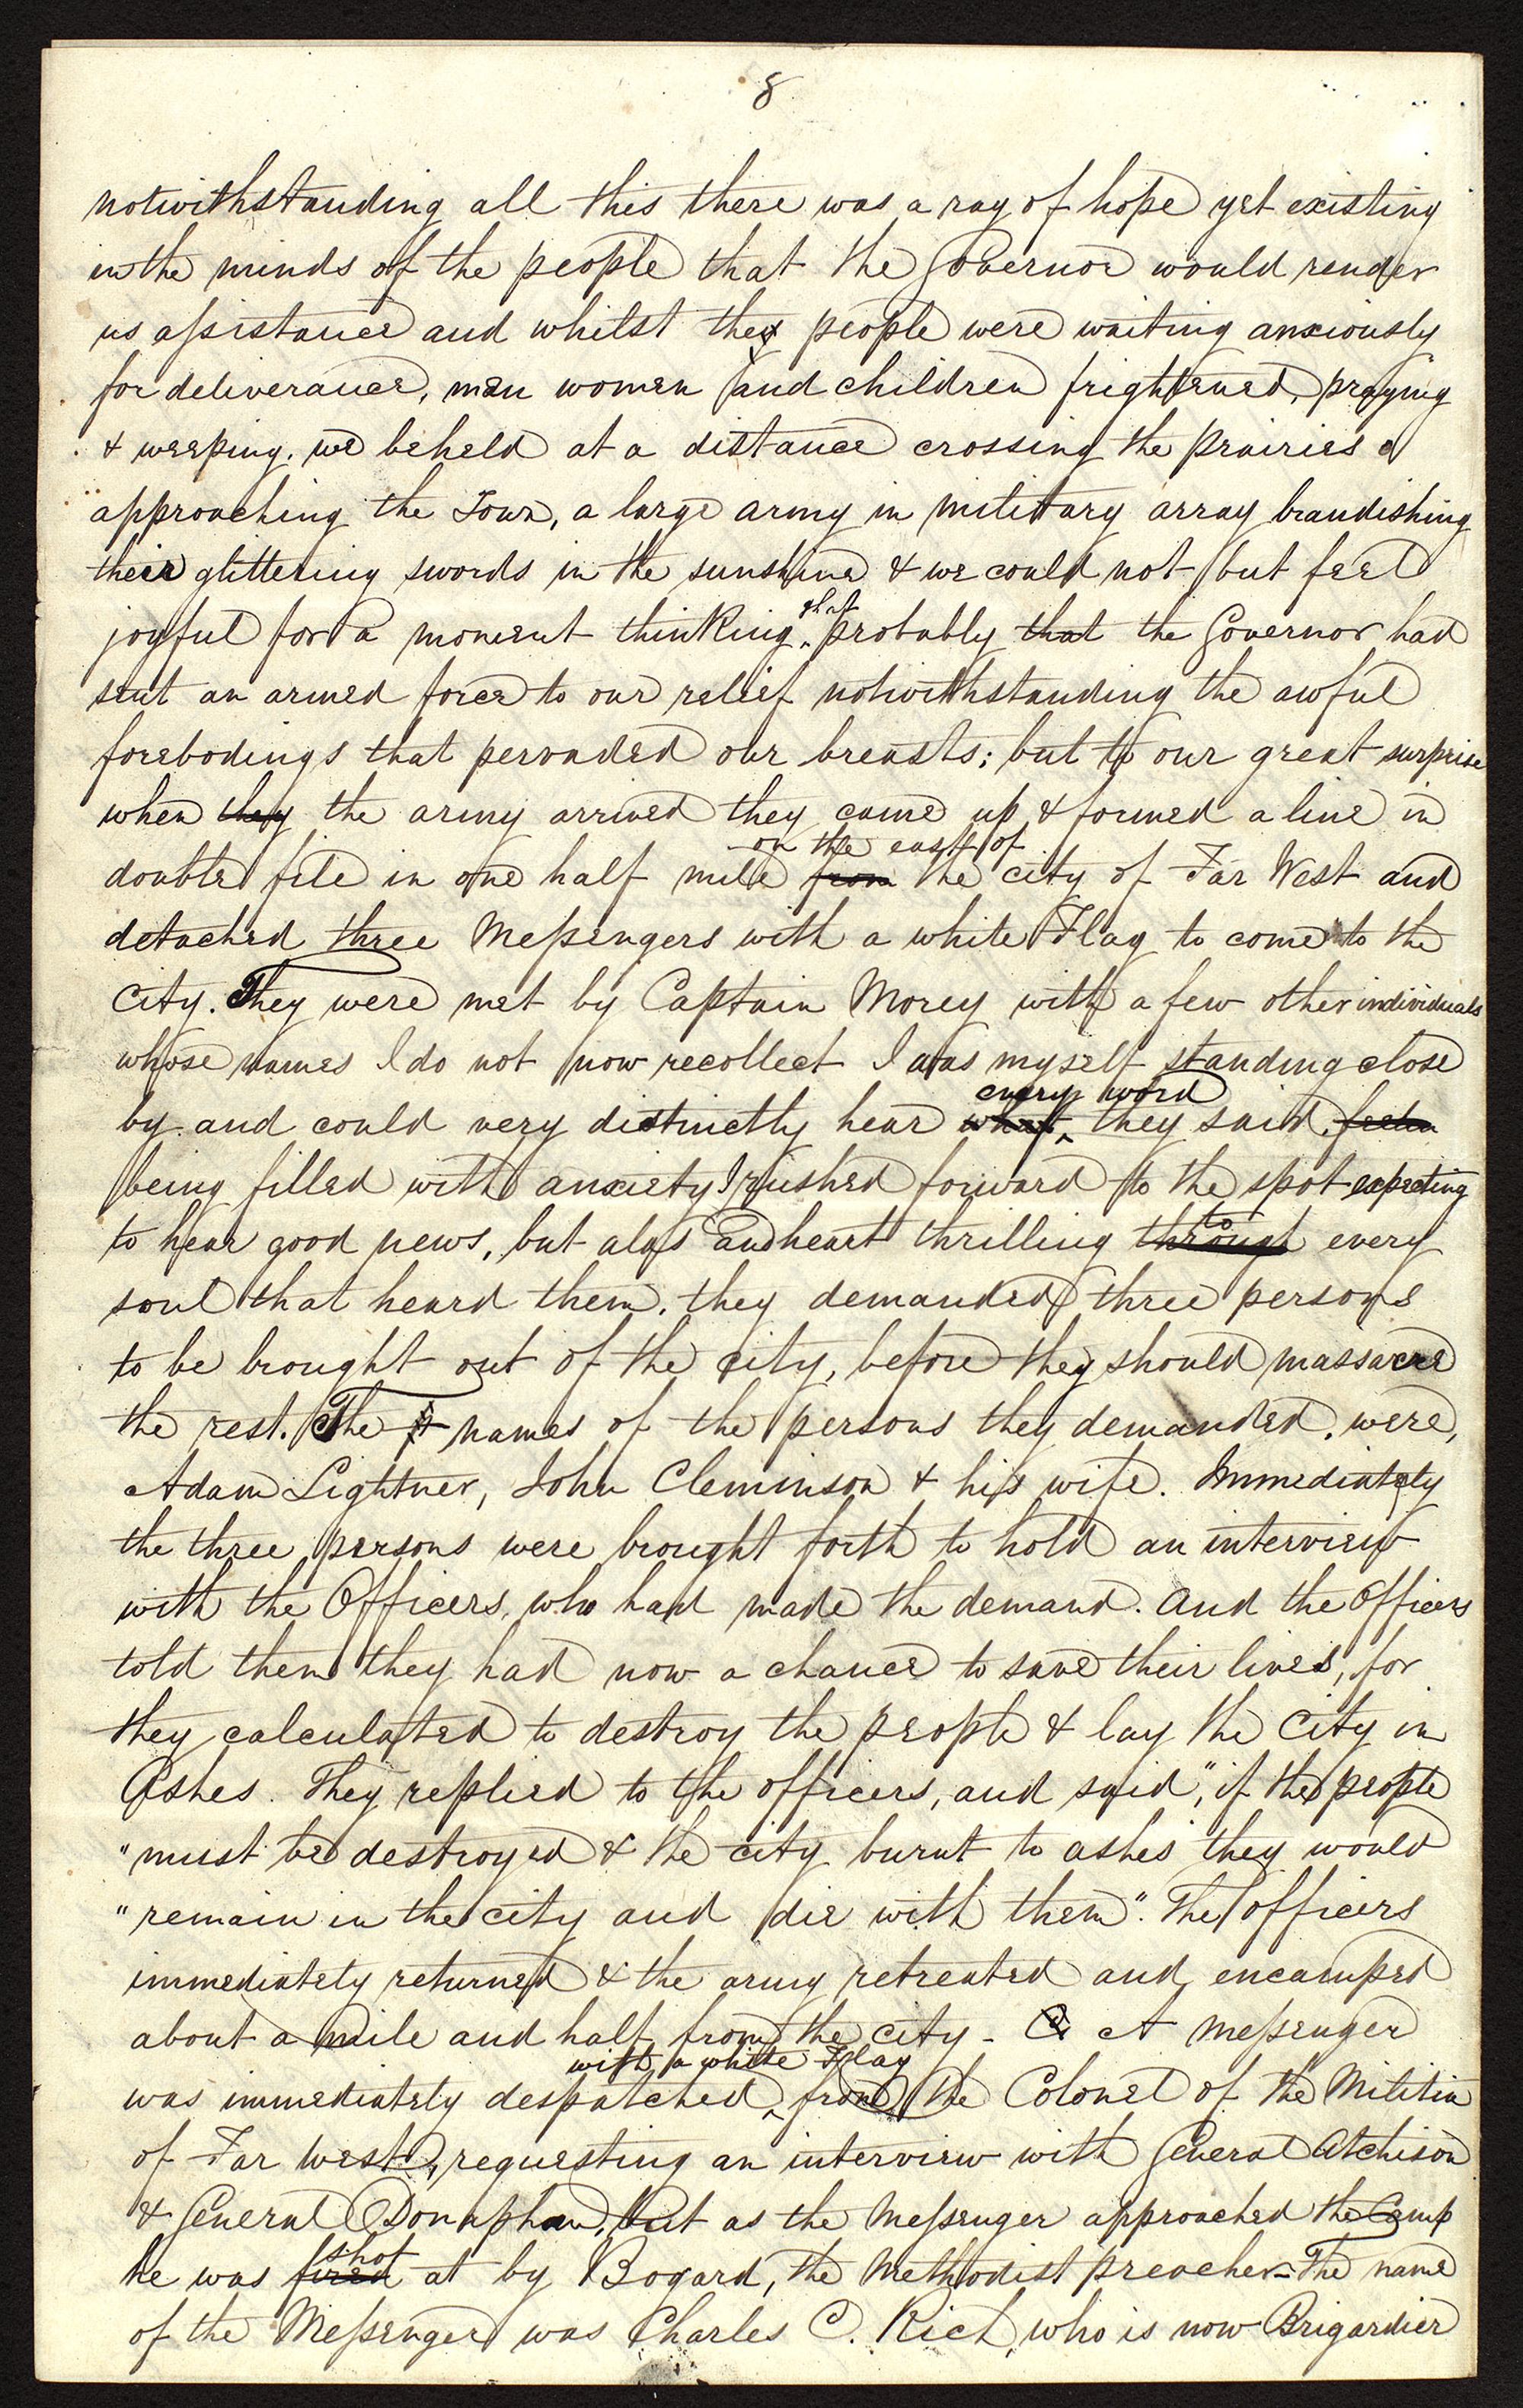 8
notwithstanding all this there was a ray of hope yet existing
in the minds of the people that the Governor would render
us assistance and whilst the people were waiting anxiously
for deliverance, men women and children frightened, praying
& weeping, we beheld at a distance crossing the prairies &
approaching the Town, a large army in military array brandishing
their glittering swords in the sunshine & we could not but feel
joyful for a moment thinking that probably that the Governor had
sent an armed force to our relief notwithstanding the awful
forebodings that pervaded our breasts; but to our great surprise
when they the army arrived they came up & formed a line in
double file in one half mile from on the east of the city of Far West and
detached three Messengers with a white Flag to come to the
City. They were met by Captain Morey with a few other individuals
whose names I do not now recollect I was myself standing close
by and could very distinctly hear what every word they said.
being filled with anxiety I rushed forward to the spot expecting
to hear good news, but alas and heart thrilling through to every
soul that heard them, they demanded three persons
to be brought out of the city, before they should massacre
the rest. The names of the persons they demanded, were,
Adam Lightner, John Cleminson & his wife. Immediately
the three persons were brought forth to hold an interview
with the Officers, who had made the demand. And the Officers
told them they had now a chance to save their lives, for
they calculated to destroy the people & lay the City in
Ashes. They replied to the officers, and said, "if the people
"must be destroyed & the city burnt to ashes they would
"remain in the city and die with them". The officers
immediately returned & the army retreated and encamped
about a mile and half from the city - A Messenger
was immediately despatched with a white Flag from the Colonel of the Militia
of Far West, requesting an interview with General Atchison
& General Donaphan, but as the Messenger approached the Camp
he was fired shot at by Bogard, the Methodist preacher - The name
of the Messenger was Charles C. Rich, who is now Brigardier